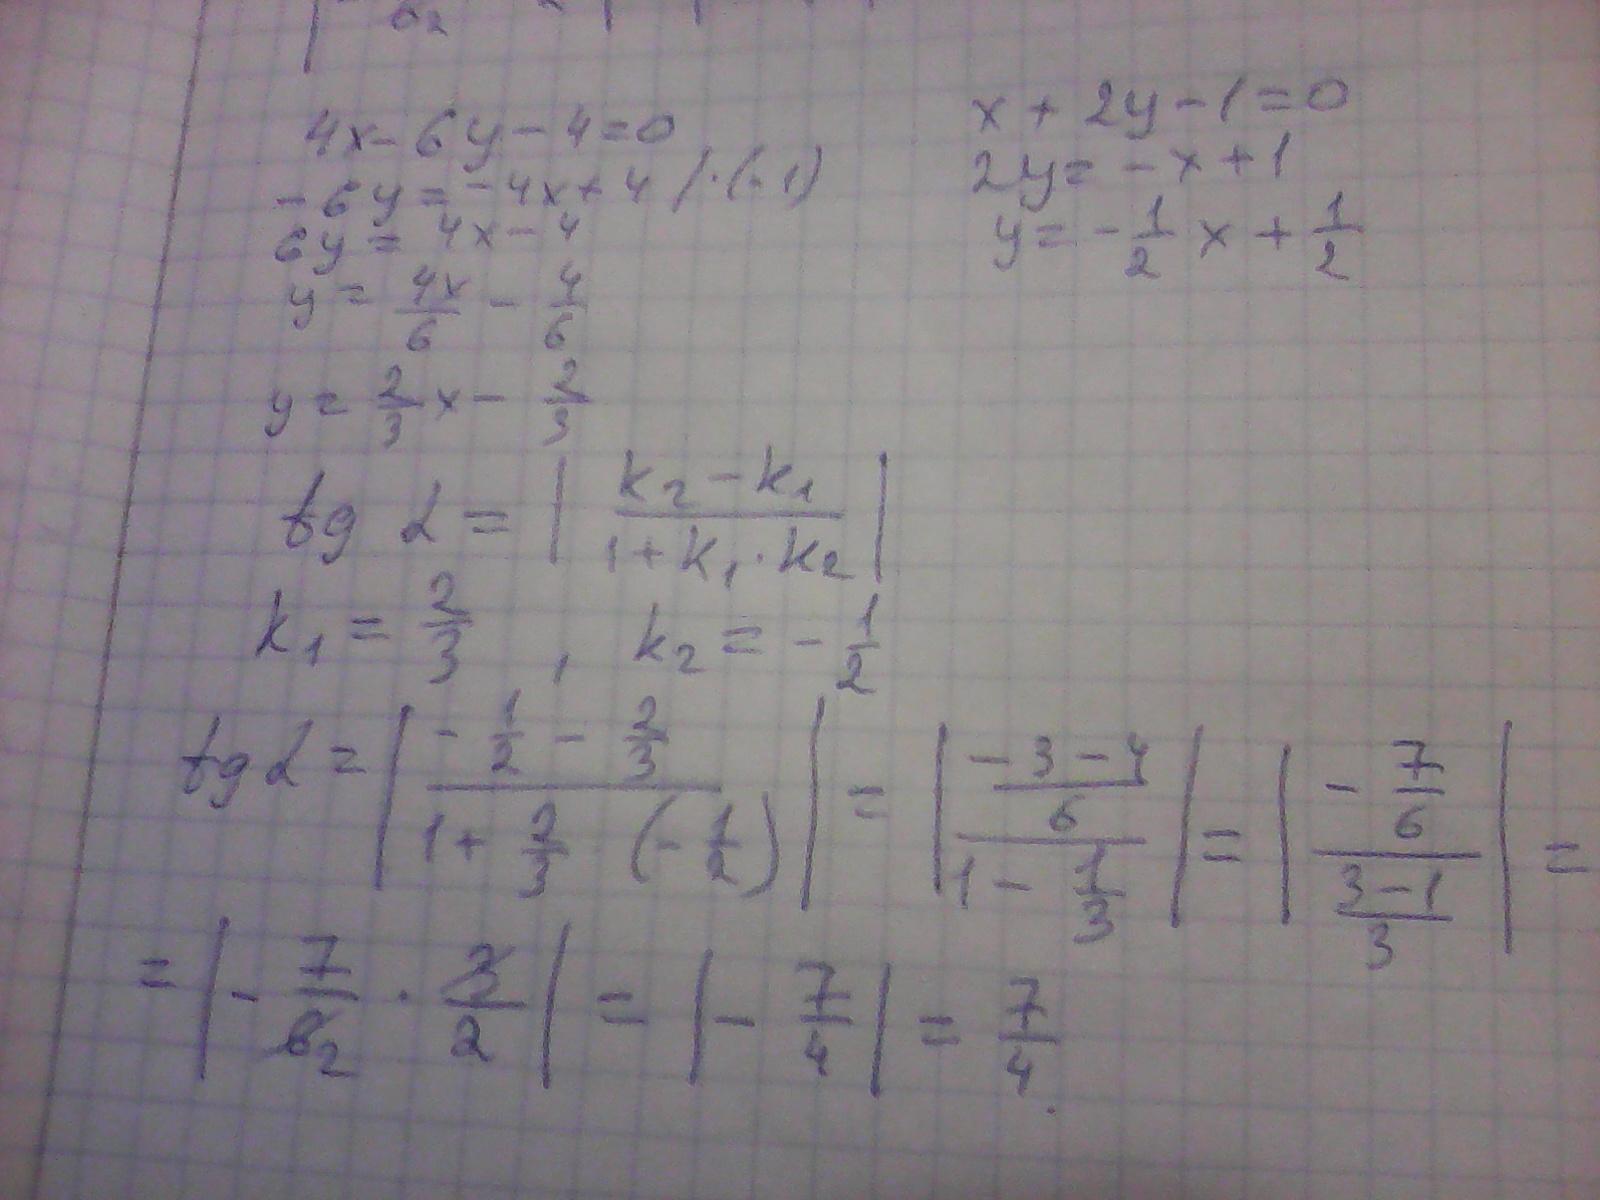 4x - 6y - 4 = 0
-6y = -4x + 4 / · (-1)
6y = 4x - 4
y = 4x/6 - 4/6
y = 2/3 x - 2/3
x + 2y - 1 = 0
2y = -x + 1
y = - 1/2 x + 1/2
tg α = | (k₂ - k₁) / (1 + k₁ · k₂) |
k₁ = 2/3 , k₂ = - 1/2
tg α = | (- 1/2 - 2/3) / (1 + 2/3 (- 1/2)) | = | ((-3-4)/6) / (1 - 1/3) | = | (- 7/6) / ((3-1)/3) | =
= | - 7/6₂ · 3/2 | = | - 7/4 | = 7/4 .